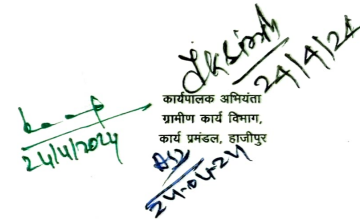 24/4/24
कार्यपालक अभियंता
ग्रामीण कार्य विभाग,
कार्य प्रमंडल, हाजीपुर
24/4/2024
24-04-24